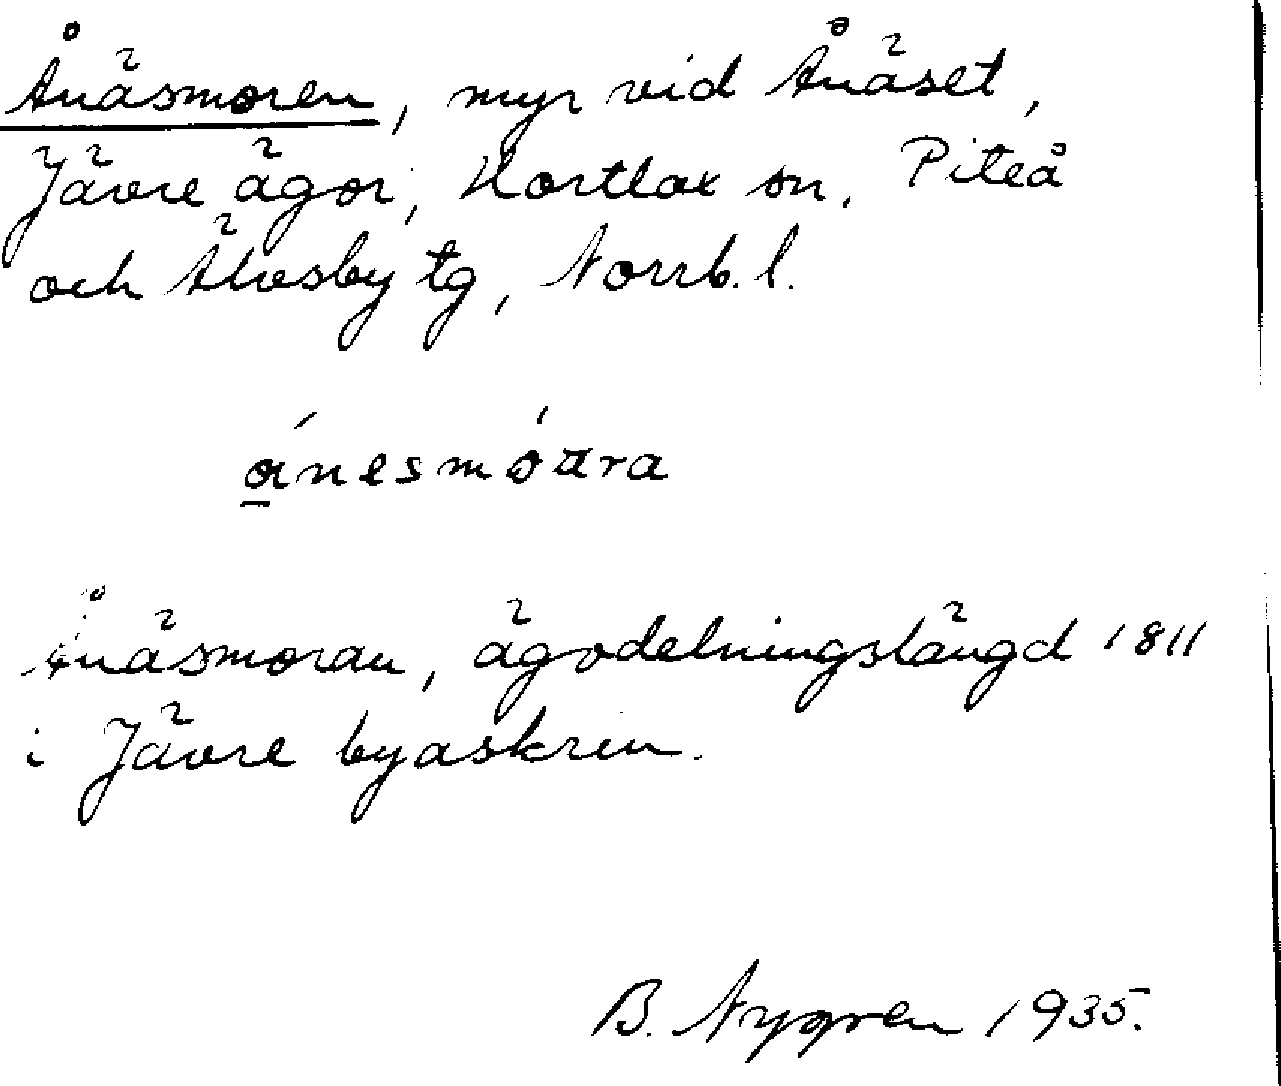 Ånäsmoren, myr vid Ånäset,
Jävre ägor, Hortlax sn, Piteå
och Älvsby tg, Norrb. l.
ånesmóära
Ånäsmoran, ägodelningslängd 1811
i Jävre byaskrin.
B. Nygren 1935.